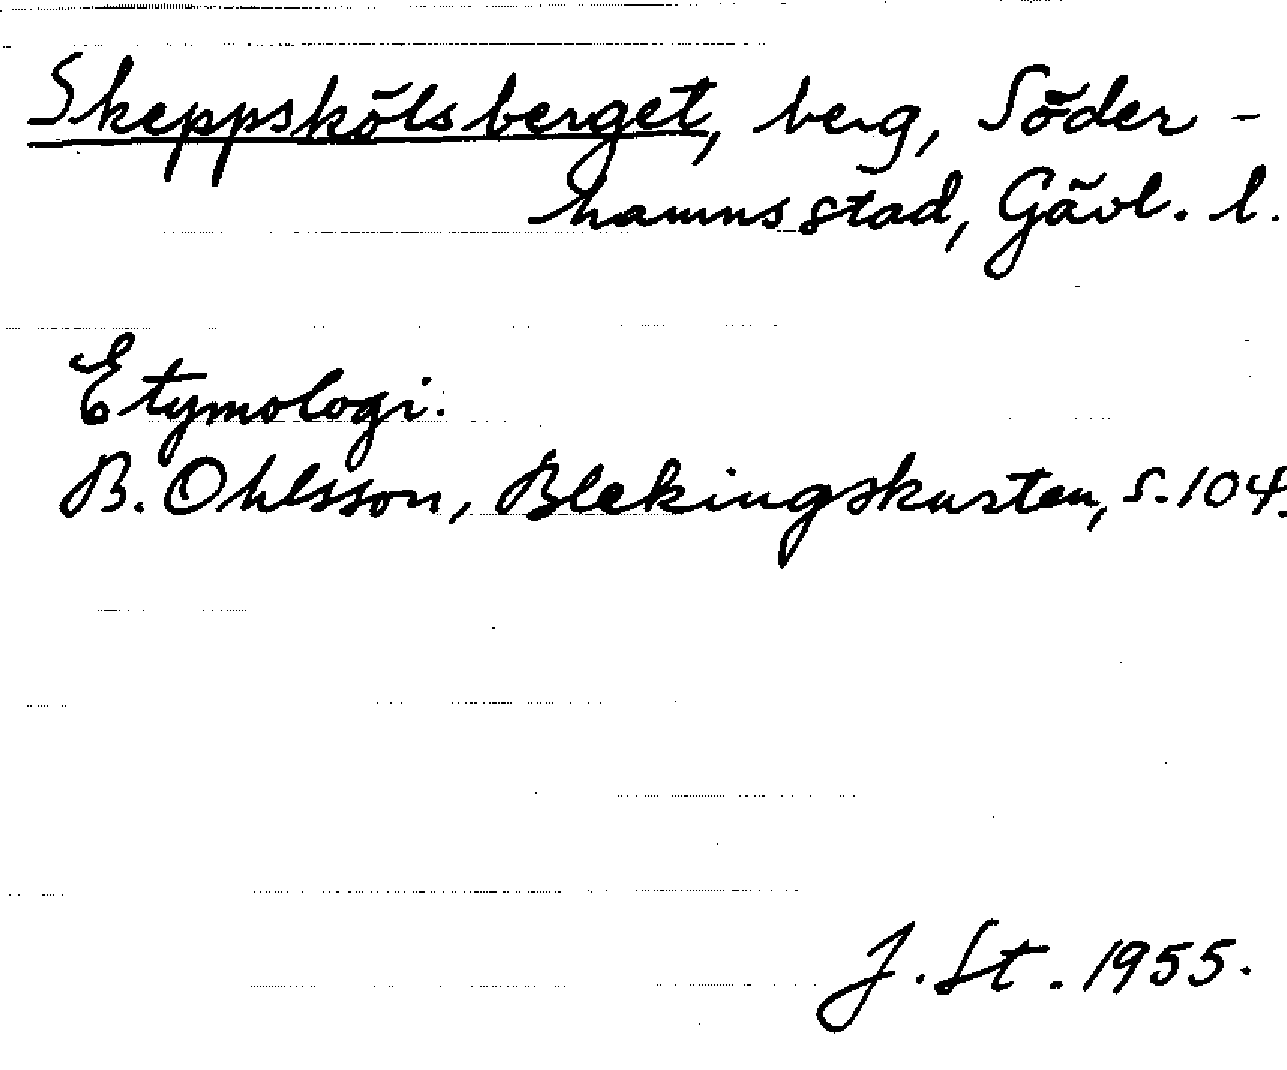 Skeppskölsberget, berg, Söder-
hamns stad, Gävl. l.
Etymologi.
B. Ohlsson, Blekingskusten, s. 104.
J. St. 1955.